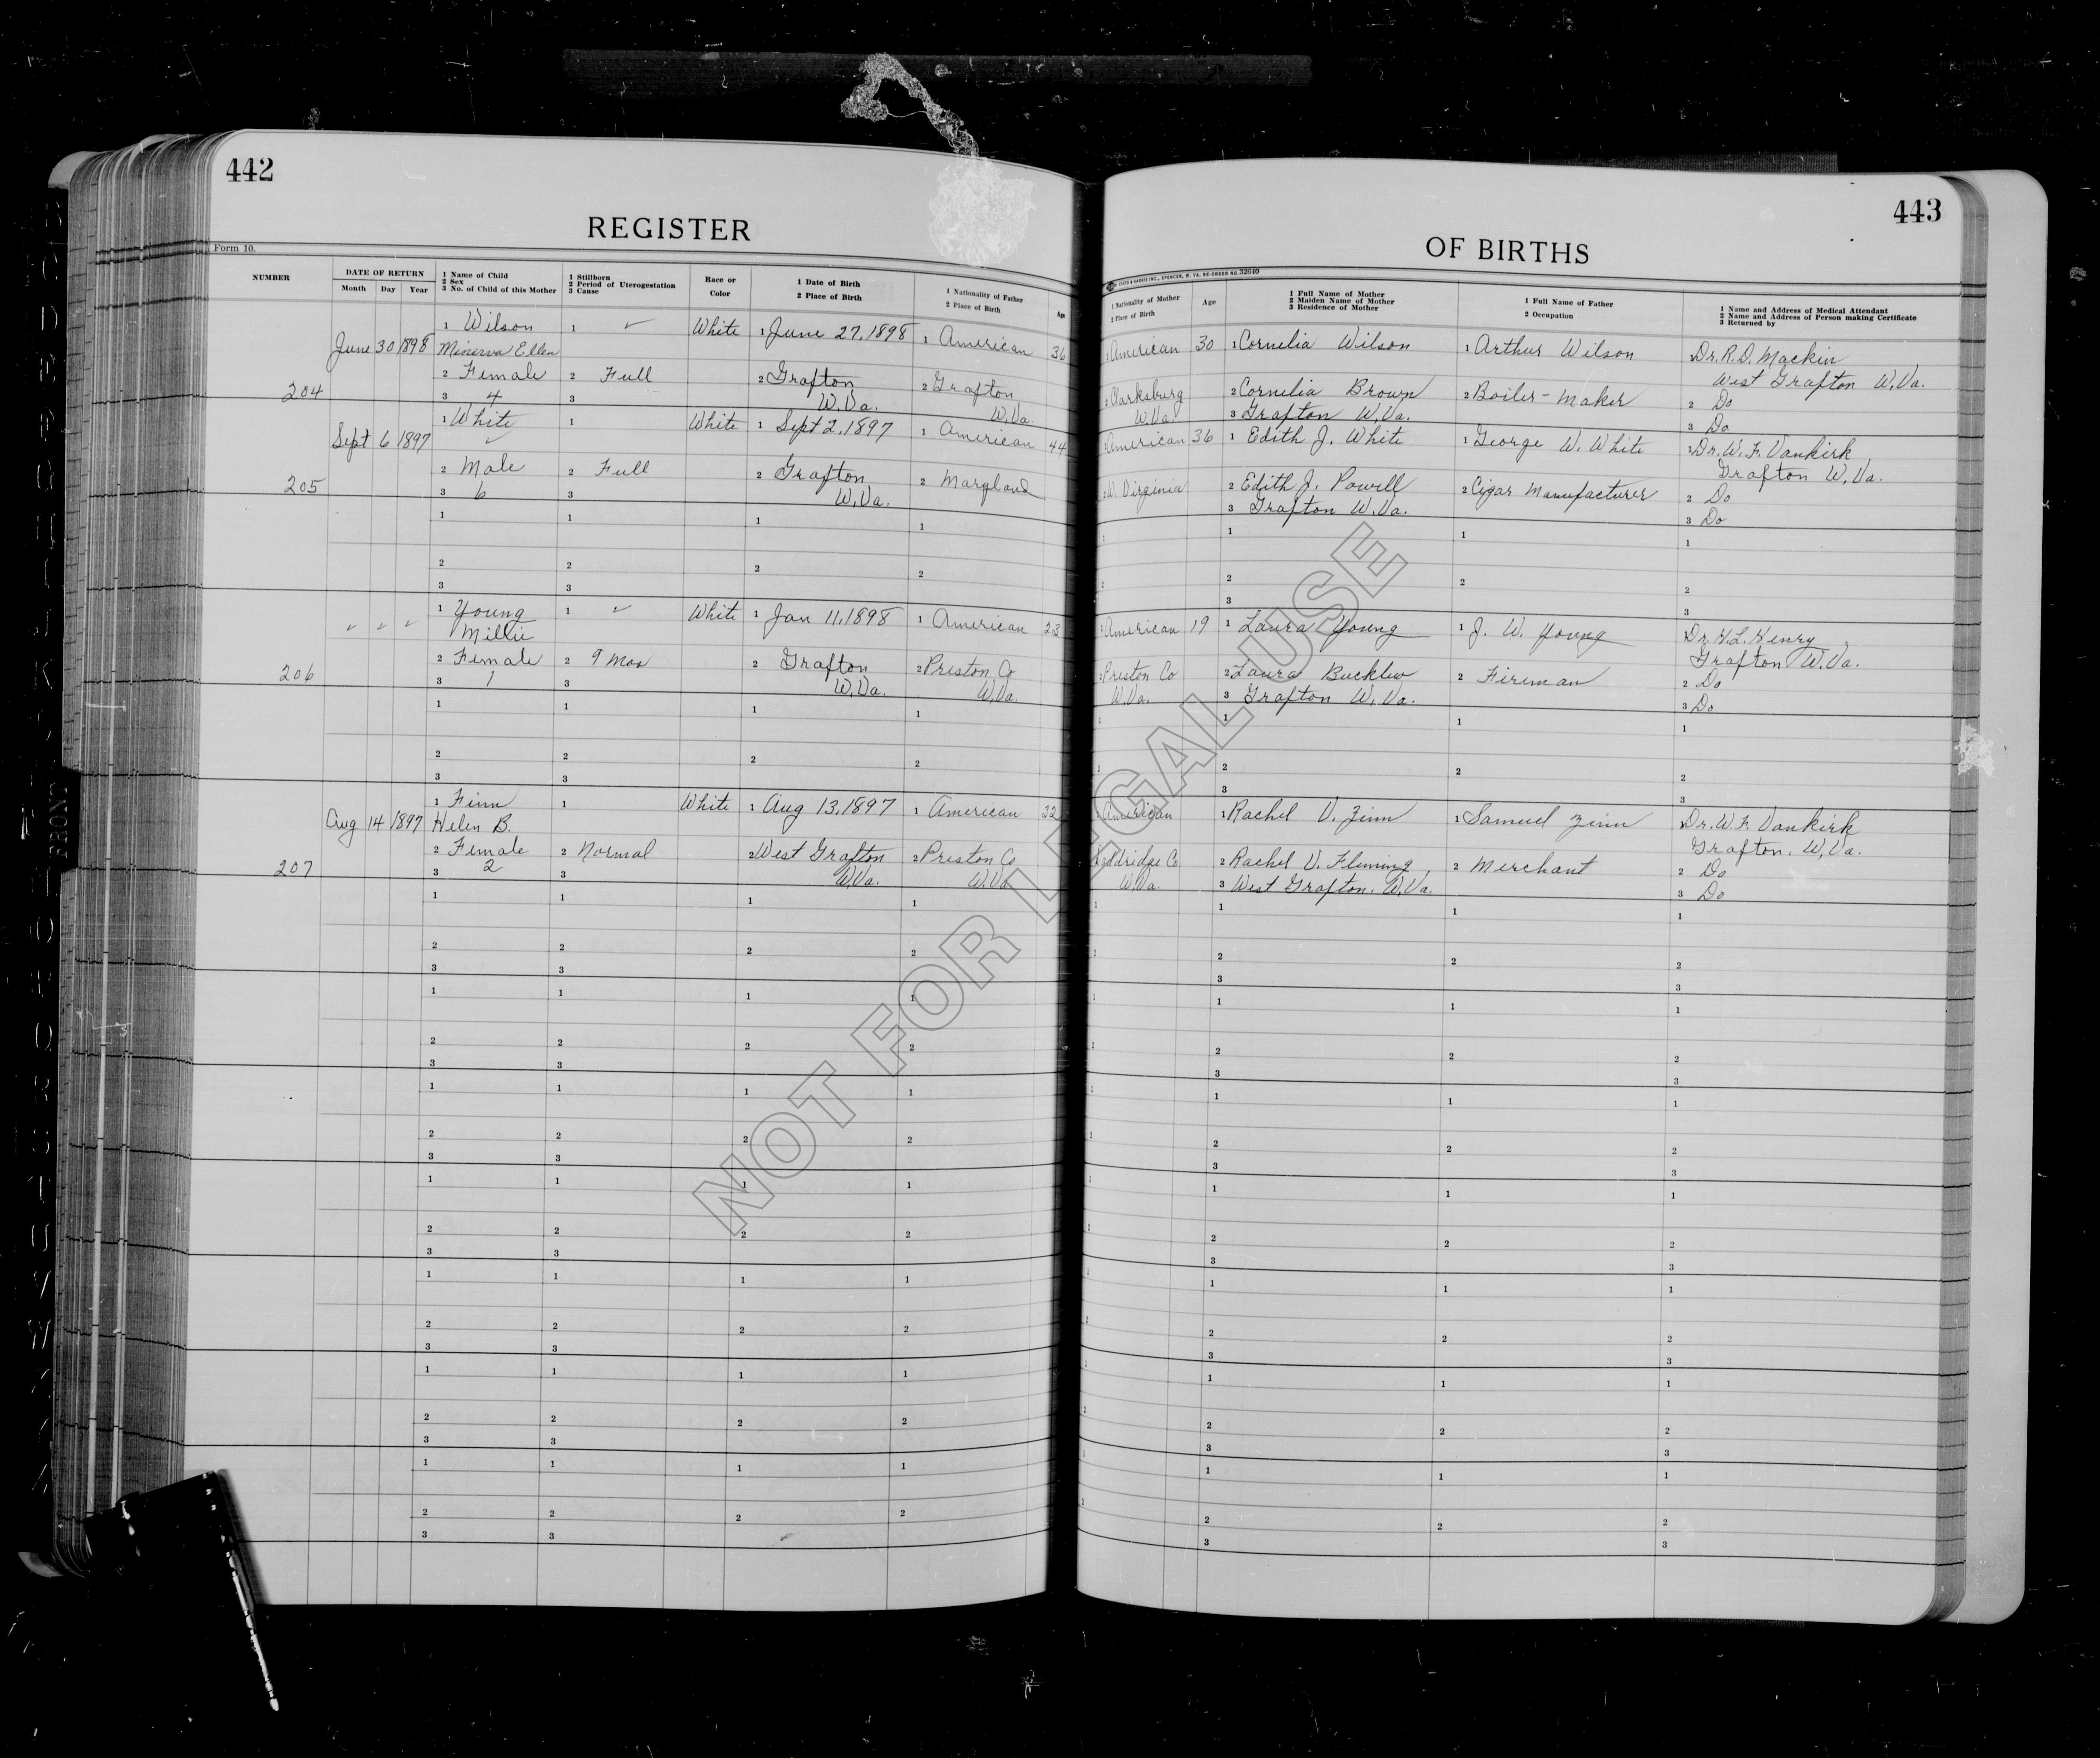 442
REGISTER
Form 10.
NUMBER
DATE OF RETURN
Month Day Year
1 Name of Child
2 Sex
3 No. of Child of this Mother
1 Stillborn
2 Period of Uterogestation
3 Cause
Race or
Color
1 Date of Birth
2 Place of Birth
1 Nationality of Father
2 Place of Birth
Age
204
June 30 1898
1 Wilson
Minerva Ellen
2 Female
3 4
1 ✓
2 Full
3
White
1 June 27, 1898
2 Grafton
W.Va.
1 American
2 Grafton
W.Va.
36
205
Sept 6 1897
1 White
✓
2 Male
3 6
1
2 Full
3
White
1 Sept 2, 1897
2 Grafton
W.Va.
1 American
2 Maryland
44
1 1 1 1
2 2 2 2
3 3
206
✓ ✓ ✓
1 Young
Millie
2 Female
3 1
1 ✓
2 9 Mos
3
White
1 Jan 11, 1898
2 Grafton
W.Va.
1 American
2 Preston Co
W.Va.
23
1 1 1 1
2 2 2 2
3 3
207
Aug 14 1897
1 Finn
Helen B.
2 Female
3 2
1
2 Normal
3
White
1 Aug 13, 1897
2 West Grafton
W.Va.
1 American
2 Preston Co
W.Va
32
1 1 1 1
2 2 2 2
3 3
1 1 1 1
2 2 2 2
3 3
1 1 1 1
2 2 2 2
3 3
1 1 1 1
2 2 2 2
3 3
1 1 1 1
2 2 2 2
3 3
1 1 1 1
2 2 2 2
3 3
1 1 1 1
2 2 2 2
3 3
443
OF BIRTHS
CASTO & HARRIS INC., SPENCER, W. VA. RE-ORDER NO. 32640
1 Nationality of Mother
2 Place of Birth
Age
1 Full Name of Mother
2 Maiden Name of Mother
3 Residence of Mother
1 Full Name of Father
2 Occupation
1 Name and Address of Medical Attendant
2 Name and Address of Person making Certificate
3 Returned by
1 American
2 Clarksburg
W.Va.
30
1 Cornelia Wilson
2 Cornelia Brown
3 Grafton W.Va.
1 Arthur Wilson
2 Boiler-Maker
1 Dr. R.D. Mackin
West Grafton W.Va.
2 Do
3 Do
1 American
2 W. Virginia
36
1 Edith J. White
2 Edith J. Powell
3 Grafton W.Va.
1 George W. White
2 Cigar Manufacturer
1 Dr. W.F. Vankirk
Grafton W.Va.
2 Do
3 Do
1 1 1 1
2 2 2 2
3 3
1 American
2 Preston Co
W.Va.
19
1 Laura Young
2 Laura Bucklew
3 Grafton W.Va.
1 J. W. Young
2 Fireman
Dr. H.L. Henry
Grafton W.Va.
2 Do
3 Do
1 1 1 1
2 2 2 2
3 3
1 American
Doddridge Co
W.Va.
1 Rachel V. Zinn
2 Rachel V. Fleming
3 West Grafton, W.Va.
1 Samuel Zinn
2 Merchant
1 Dr. W.F. Vankirk
Grafton, W.Va.
2 Do
3 Do
1 1 1 1
2 2 2 2
3 3
1 1 1 1
2 2 2 2
3 3
1 1 1 1
2 2 2 2
3 3
1 1 1 1
2 2 2 2
3 3
1 1 1 1
2 2 2 2
3 3
1 1 1 1
2 2 2 2
3 3
1 1 1 1
2 2 2 2
3 3
NOT FOR LEGAL USE